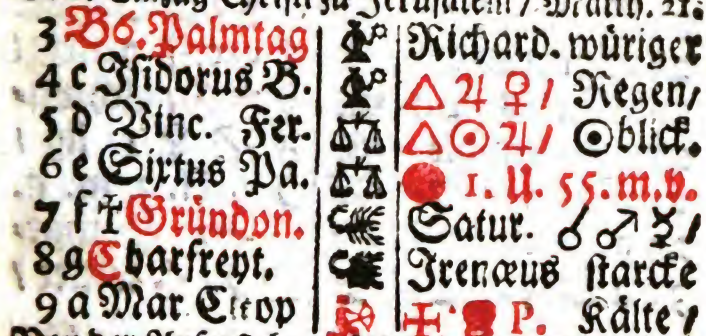 3 B 6. Palmtag Richard. würiger
4 c Isidorus B. △ ♃ ♀ / Regen /
5 d Vinc. Fer. △ ☉ ♃ / ☉blick.
6 e Sixtus Pa. 1. U. 55. m. v.
7 f ☩ Gründon. Satur. ☌ ♂ ☿ /
8 g Charfreyt. Irenæus starcke
9 a Mar. P. Kälte /